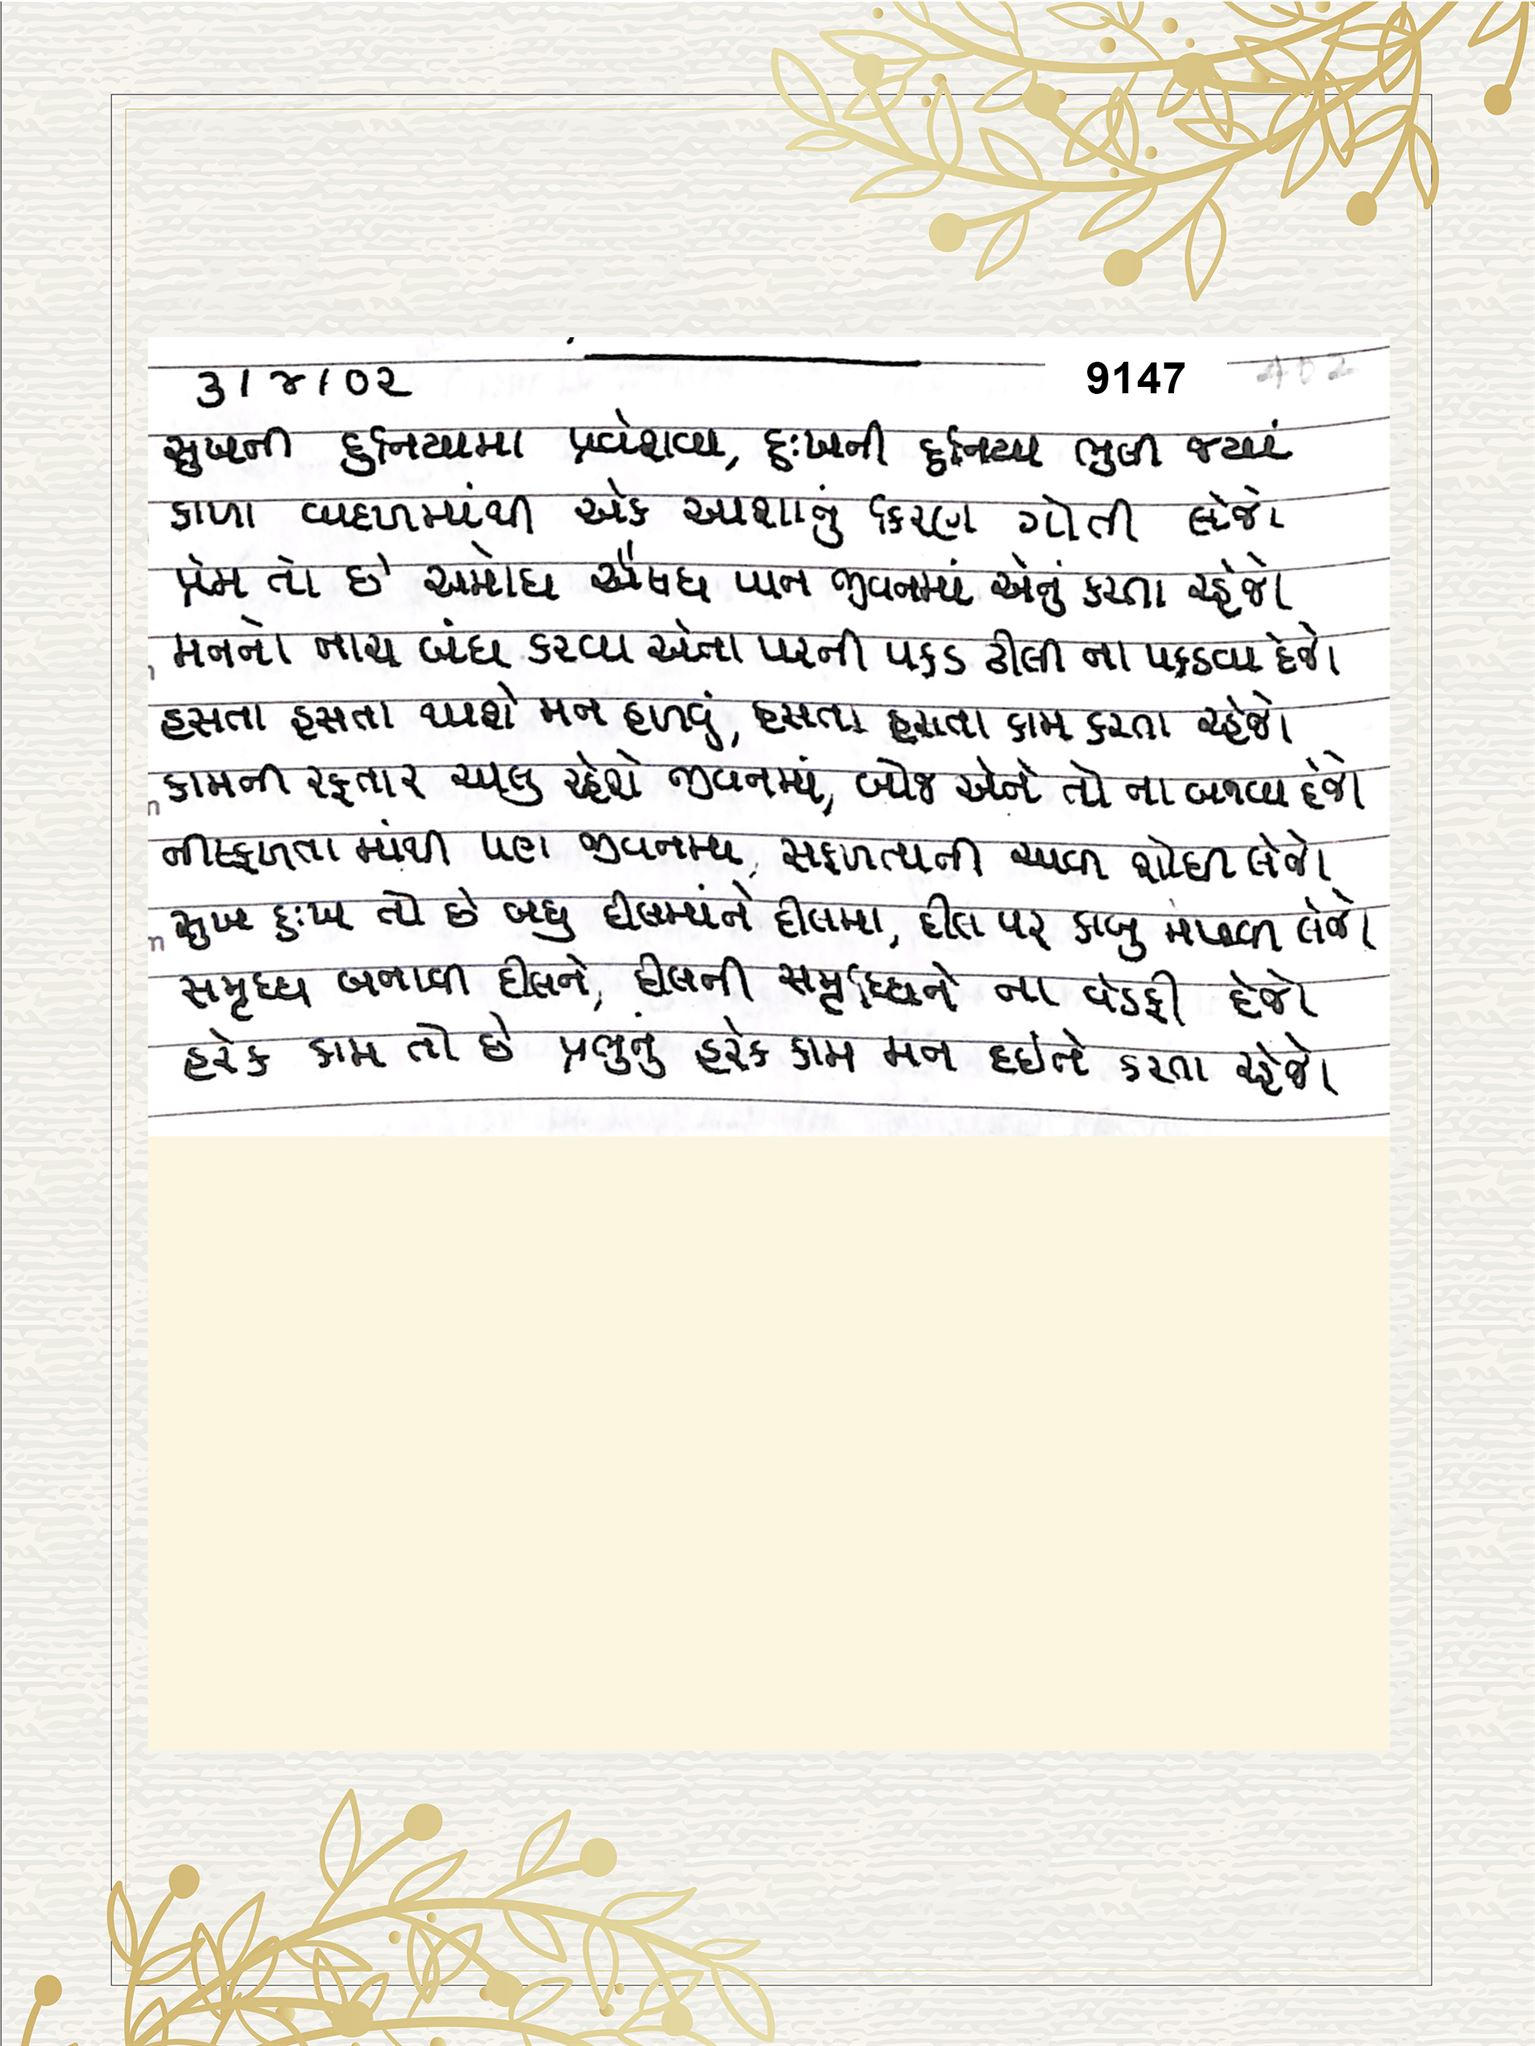 ૩/૪/૦૨ 9147
સુખની દુનિયામા પ્રવેશવા, દુઃખની દુનિયા ભુલી જ્યાં
કાળા વાદળમાંથી એક આશાનું કિરણ ગોતી લેજો
પ્રેમ તો છે અમોઘ ઔષધ પાન જીવનમાં એનું કરતા રહેજો
મનનો નાચ બંધ કરવા એના પરની પકડ ઢીલી ના પકડવા દેજો
હસતા હસતા થાશે મન હળવું, હસતા હસતા કામ કરતા રહેજો
કામની રફતાર ચાલુ રહેશે જીવનમાં, બોજ એને તો ના બનવા દેજો
નીસ્ફળતામાંથી પણ જીવનમાં, સફળતાની ચાવી શોધી લેજો
સુખ દુઃખ તો છે બધુ દીલમાંને દીલમા, દીલ પર કાબુ મેળવી લેજો
સમૃધ્ધ બનાવી દીલને, દીલની સમૃધ્ધિને ના વેડફી દેજો
હરેક કામ તો છે પ્રભુનું હરેક કામ મન દઇને કરતા રહેજો